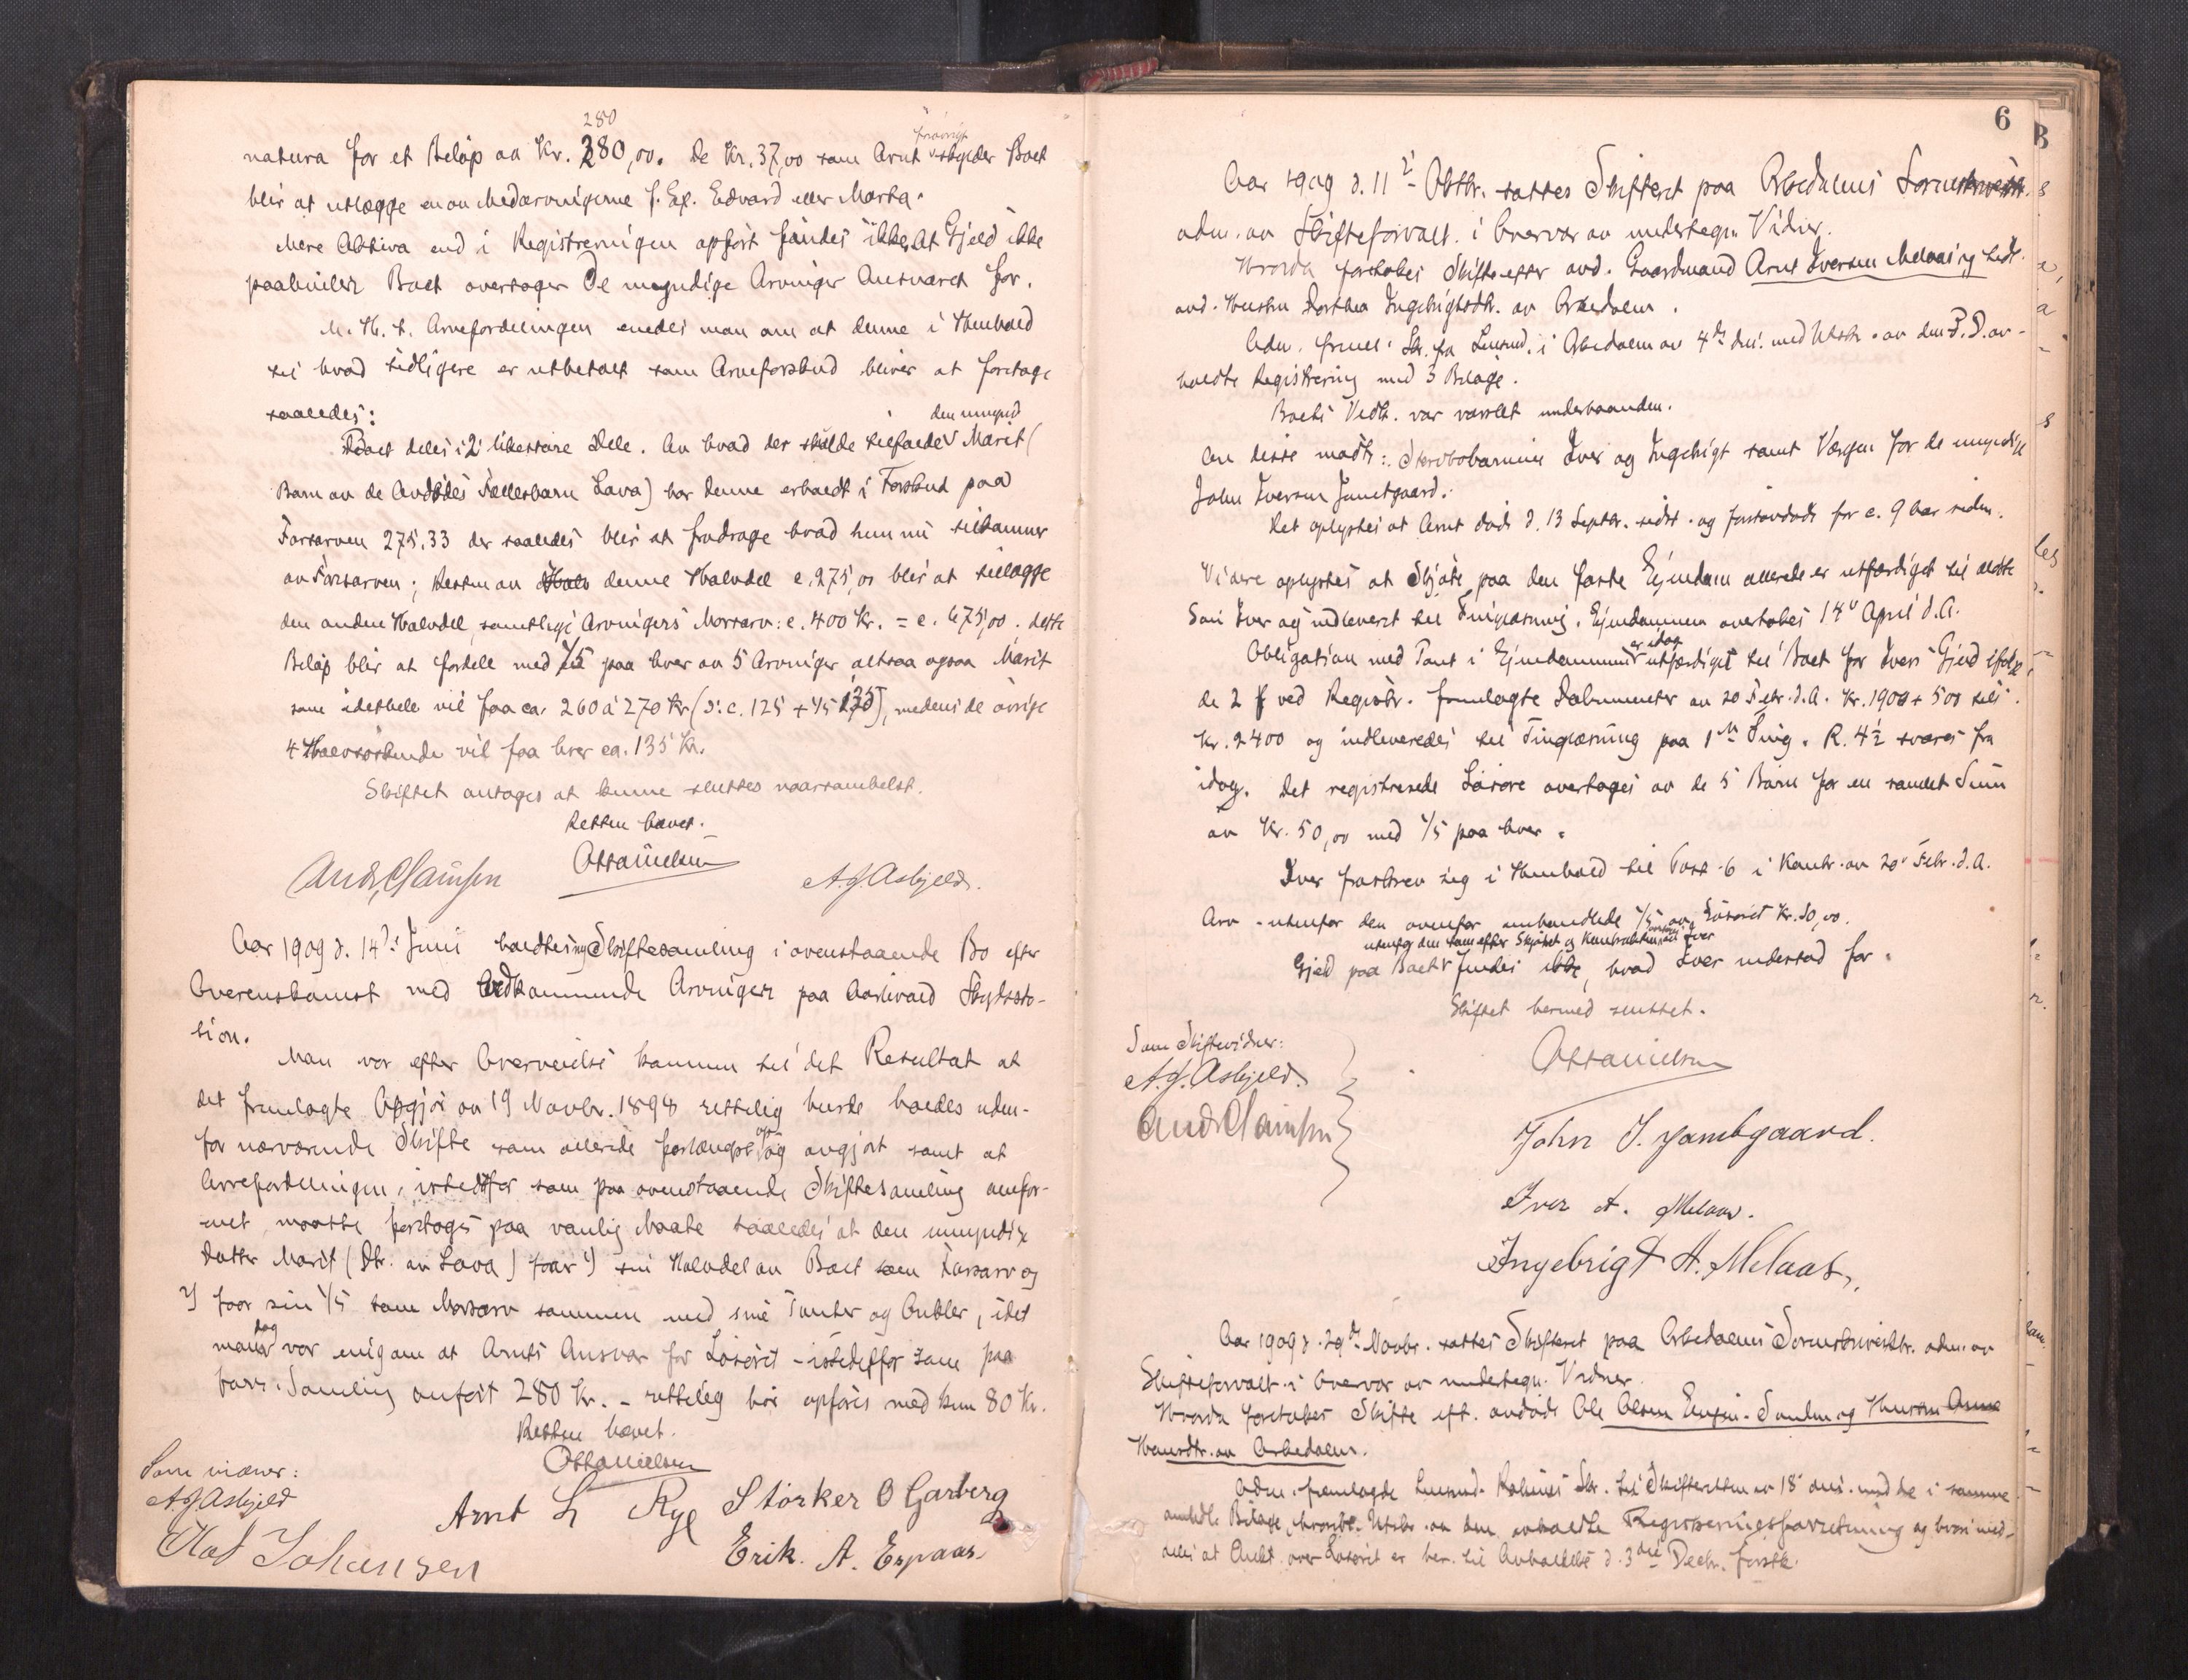 280
natura for et Beløp aa Kr. 280,00. De Kr. 37,00 som Arnt forøvrigt skylder Boet
blir at utlægge en av Medarvingerne f. Ex. Edvard eller Marta.
Mere Aktiva end i Registreringen opført fandtes ikke. At Gjeld ikke
paahviler Boet overtager De myndige Arvinger Ansvaret for.
M. H. t. Arvefordelingen enedes man om at denne i Henhold
til hvad tidligere er utbetalt som Arveforskud bliver at foretage
saaledes:
Boet deles i 2 likestore Dele. Av hvad der skulde tilfalde den umynd. Marit (
Barn av de Avdødes Fællesbarn Lava) har denne erholdt i Forskud paa
Farsarven 275,33 der saaledes blir at fradrage hvad hun nu tilkommer
av Farsarven; Resten av denne Halvdel c. 275,00 blir at tillægge
den anden Halvdel, samtlige Arvingers Morsarv: c. 400 Kr. = c. 675,00. dette
Beløp blir at fordele med 1/5 paa hver av 5 Arvinger altsaa ogsaa Marit
som idethele vil faa ca. 260 á 270 Kr (ɔ: c. 125 + 1/5 135), medens de øvrige
4 Halvsøskende vil faa hver ca. 135 Kr.
Skiftet antages at kunne sluttes naarsomhelst.
Retten hævet.
Ottanielsen
A. J. Asbjeld.
Aar 1909 d. 14de Juni holdtes ny Skiftesamling i ovenstaaende Bo efter
Overenskomst med Vedkommende Arvinger paa Aarlivold Skydssta-
tion.
Man var efter Overveielse kommen til det Resultat at
det fremlagte Opgjør av 19 Novbr. 1898 rettelig burde holdes uden-
for nærværende Skifte som allerede forlængst op og avgjort samt at
Arvefordelingen, istedetfor som paa ovenstaaende Skiftesamling omfor-
enet, maatte foretages paa vanlig Maate saaledes at den umyndige
Datter Marit (Dtr. av Lava) faar 1) sin Halvdel av Boet som Farsarv og
2) faar sin 1/5 som Morsarv sammen med sine Tanter og Onkler, idet
man dog var enig om at Arnts Ansvar for Løsøret - istedetfor som paa
forr. Samling anført 280 Kr. - rettelig bør opføres med kun 80 Kr.
Retten hævet.
Ottanielsen
Som vidner:
A J Asbjeld
Olaf Johansen
Arnt L Rye Størker O Garberg
Erik. A. Espaas.
6
Aar 1909 d. 11te Oktbr. sattes Skifteret paa Orkedalens Sorenskriverk.
adm. av Skifteforvalt. i Overvær av undertegn. Vidner.
Hvorda foretokes Skifte efter avd. Gaardmand Arnt Iversen Melaas og tidl.
avd. Hustru Dorthea Ingebrigtsdtr. av Orkedalen.
Adm. freml. Skr. fra Lensmd. i Orkedalen av 4de ds. med Utskr. av den P. D. av-
holdte Registrering med 3 Bilage.
Boets Vedk. var varslet underhaanden.
Av disse mødte: Sterbobarnene Iver og Ingebrigt samt Værgen for de umyndige
John Iversen Jamtgaard.
Det oplystes at Arnt døde d. 13 Septbr. sidst. og forstavdøde for c. 9 Aar siden.
Videre oplystes at Skjøte paa den faste Ejendom allerede er utfærdiget til ældste
Søn Iver og indleveret til Tinglæsning. Ejendommen overtokes 14de April d.A.
Obligation med Pant i Ejendommen er idag utfærdiget til Boet for Ivers Gjeld ifølge
de 2 ved Registr. fremlagte Dokumenter av 20 Febr. d.A. Kr. 1900 + 500 tils.
Kr. 2400 og indleveredes til Tinglæsning paa 1ste Ting. R. 4½ svares fra
idag. Det registrerede Løsøre overtages av de 5 Børn for en rundet Sum
av Kr. 50,00 med 1/5 paa hver.
Iver fraskrev sig i Henhold til Post 6 i Kontr. av 20de Febr. d.A.
Arv - utenfor den ovenfor omhandlede 1/5 av Løsøret Kr. 10,00.
utenfor den som efter Skjøtet og Kontrakten Iver
Gjeld paa Boet findes ikke, hvad Iver indestod for.
Skiftet hermed sluttet.
Som Skiftevidner:
A. J. Asbjeld.
Ottanielsen
John I. Jamtgaard.
Iver A. Melaas.
Ingebrigt A. Melaas.
Aar 1909 d. 29de Novbr. sattes Skifteret paa Orkedalens Sorenskriverktr. adm. av
Skifteforvalt. i Overvær av undertegn. Vidner.
Hvorda foretokes Skifte eft. avdøde Ole Olsen og Hustru Anne
Hansdtr. av Orkedalen.
Adm. fremlagde Lensmd. Skr. til Skifteretten av 18 ds. med de i samme
omhdl. Bilage, hvorbl. Utskr. av den avholdte Registreringsforretning og hvori med-
deles at Aukt. over Løsøret er ber. til Avholdelse d. 3die Decbr. førstk.